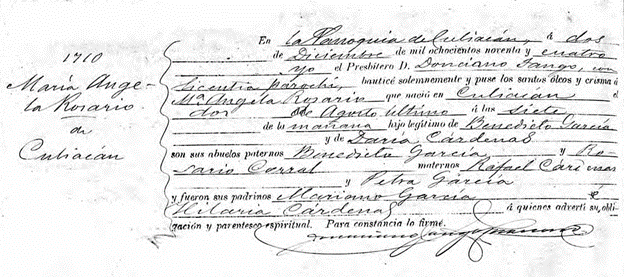 1710
María Ange-
la Rosario
de
Culiacán
En la Parroquia de Culiacán, á dos
de Diciembre de mil ochocientos noventa y cuatro
yo el Presbitero D. Donciano Tango, con
Licentia Parochi, bauticé solemnemente y puse los santos óleos y crisma á
Mª Angela Rosario que nació en Culiacán el
dos de Agosto último á las siete
de la mañana hijo legítimo de Benedicto García
y de Daria Cárdenas
son sus abuelos paternos Benedicto García y Ro-
sario Corral maternos Rafael Cárdenas
y Petra García
y fueron sus padrinos Mariano García é
Hilaria Cárdenas á quienes advertí su obli-
gación y parentesco espiritual. Para constancia lo firmé.